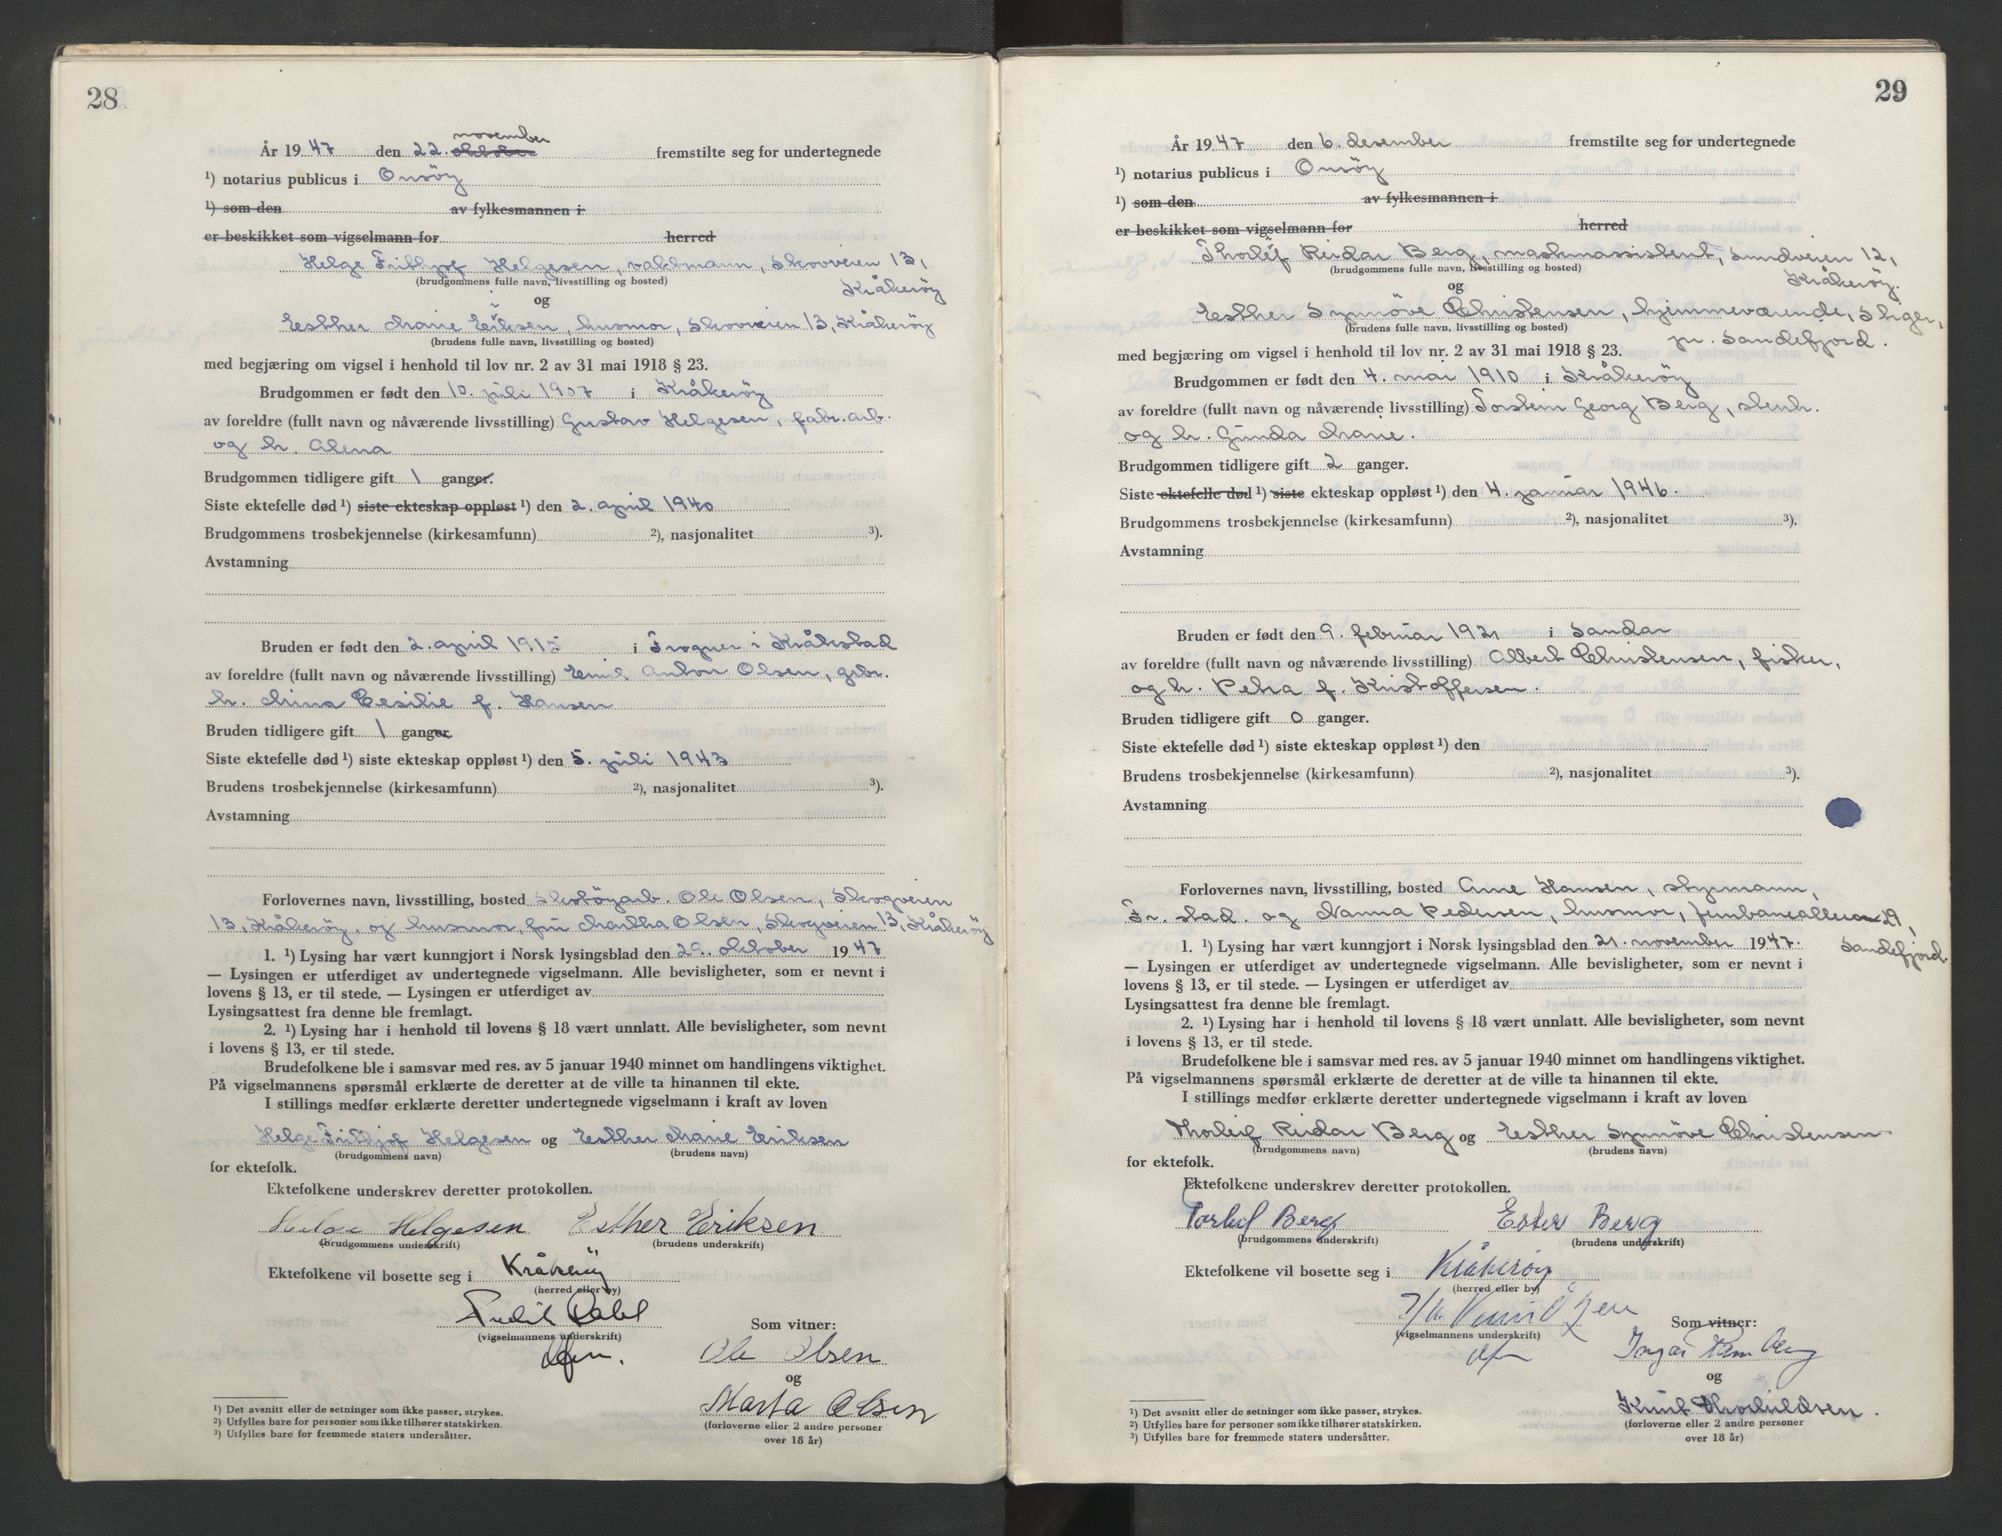 28
november
År 19 47 den 22. oktober fremstilte seg for undertegnede
¹) notarius publicus i Onsöy
¹) som den av fylkesmannen i
er beskikket som vigselmann for herred
Helge Frithjof Helgesen, valsmann, Skovveien 13,
(brudgommens fulle navn, livsstilling og bosted)
Kråkeröy
og
Esther Marie Eriksen, husmor, Skovveien 13, Kråkeröy
(brudens fulle navn, livsstilling og bosted)
med begjæring om vigsel i henhold til lov nr. 2 av 31 mai 1918 § 23.
Brudgommen er født den 10. juli 1907 i Kråkeröy
av foreldre (fullt navn og nåværende livsstilling) Gustav Helgesen, fabr.arb.
og h. Alena
Brudgommen tidligere gift 1 ganger.
Siste ektefelle død ¹) siste ekteskap oppløst ¹) den 2. april 1940
Brudgommens trosbekjennelse (kirkesamfunn) ²), nasjonalitet ³).
Avstamning
Bruden er født den 2. april 1915 i Frogner i Kråkstad
av foreldre (fullt navn og nåværende livsstilling) Emil Anton Olsen, grbr.
h. Mina Cesilie f. Hansen
Bruden tidligere gift 1 ganger
Siste ektefelle død ¹) siste ekteskap oppløst ¹) den 5. juli 1943
Brudens trosbekjennelse (kirkesamfunn) ²), nasjonalitet ³).
Avstamning
Forlovernes navn, livsstilling, bosted Skotöyarb. Ole Olsen, Skogveien
13, Kråkeröy, og husmor, fru Martha Olsen, Skogveien 13, Kråkeröy
1. ¹) Lysing har vært kunngjort i Norsk lysingsblad den 29. oktober 1947
— Lysingen er utferdiget av undertegnede vigselmann. Alle bevisligheter, som er nevnt i
lovens § 13, er til stede. — Lysingen er utferdiget av
Lysingsattest fra denne ble fremlagt.
2. ¹) Lysing har i henhold til lovens § 18 vært unnlatt. Alle bevisligheter, som nevnt
i lovens § 13, er til stede.
Brudefolkene ble i samsvar med res. av 5 januar 1940 minnet om handlingens viktighet.
På vigselmannens spørsmål erklærte de deretter at de ville ta hinannen til ekte.
I stillings medfør erklærte deretter undertegnede vigselmann i kraft av loven
Helge Frithjof Helgesen og Esther Marie Eriksen
(brudgommens navn) (brudens navn)
for ektefolk.
Ektefolkene underskrev deretter protokollen.
Helge Helgesen Esther Eriksen
(brudgommens underskrift) (brudens underskrift)
Ektefolkene vil bosette seg i Kråkeröy
(herred eller by)
(vigselmannens underskrift) Som vitner:
Ole Olsen
og
Marta Olsen
(forloverne eller 2 andre personer
over 18 år)
¹) Det avsnitt eller de setninger som ikke passer, strykes.
²) Utfylles bare for personer som ikke tilhører statskirken.
³) Utfylles bare for fremmede staters undersåtter.
29
År 19 47 den 6. desember fremstilte seg for undertegnede
¹) notarius publicus i Onsöy
¹) som den av fylkesmannen i
er beskikket som vigselmann for herred
Thorleif Reidar Berg, maskinassistent, Sundveien 12,
(brudgommens fulle navn, livsstilling og bosted)
Kråkeröy.
og
Esther Synnöve Christensen, hjemmeværende, Skger,
(brudens fulle navn, livsstilling og bosted)
pr. Sandefjord.
med begjæring om vigsel i henhold til lov nr. 2 av 31 mai 1918 § 23.
Brudgommen er født den 4. mai 1910 i Kråkeröy
av foreldre (fullt navn og nåværende livsstilling) Torstein Georg Berg, stenh.
og h. Gunda Marie.
Brudgommen tidligere gift 2 ganger.
Siste ektefelle død ¹) siste ekteskap oppløst ¹) den 4. januar 1946.
Brudgommens trosbekjennelse (kirkesamfunn) ²), nasjonalitet ³).
Avstamning
Bruden er født den 9. februar 1921 i Sandar
av foreldre (fullt navn og nåværende livsstilling) Albert Christensen, fisker,
og h. Petra f. Kristoffersen.
Bruden tidligere gift 0 ganger.
Siste ektefelle død ¹) siste ekteskap oppløst ¹) den
Brudens trosbekjennelse (kirkesamfunn) ²), nasjonalitet ³).
Avstamning
Forlovernes navn, livsstilling, bosted Arne Hansen, styrmann,
Fr. stad. og Nanna Pedersen, husmor, Jernbanealleen 29,
Sandefjord.
1. ¹) Lysing har vært kunngjort i Norsk lysingsblad den 21. november 1947.
— Lysingen er utferdiget av undertegnede vigselmann. Alle bevisligheter, som er nevnt i
lovens § 13, er til stede. — Lysingen er utferdiget av
Lysingsattest fra denne ble fremlagt.
2. ¹) Lysing har i henhold til lovens § 18 vært unnlatt. Alle bevisligheter, som nevnt
i lovens § 13, er til stede.
Brudefolkene ble i samsvar med res. av 5 januar 1940 minnet om handlingens viktighet.
På vigselmannens spørsmål erklærte de deretter at de ville ta hinannen til ekte.
I stillings medfør erklærte deretter undertegnede vigselmann i kraft av loven
Thorleif Reidar Berg og Esther Synnöve Christensen
(brudgommens navn) (brudens navn)
for ektefolk.
Ektefolkene underskrev deretter protokollen.
Torleif Berg Ester Berg
(brudgommens underskrift) (brudens underskrift)
Ektefolkene vil bosette seg i Kråkerøy
(herred eller by)
(vigselmannens underskrift) Som vitner:
og
Knut Thorkildsen.
(forloverne eller 2 andre personer
over 18 år)
¹) Det avsnitt eller de setninger som ikke passer, strykes.
²) Utfylles bare for personer som ikke tilhører statskirken.
³) Utfylles bare for fremmede staters undersåtter.